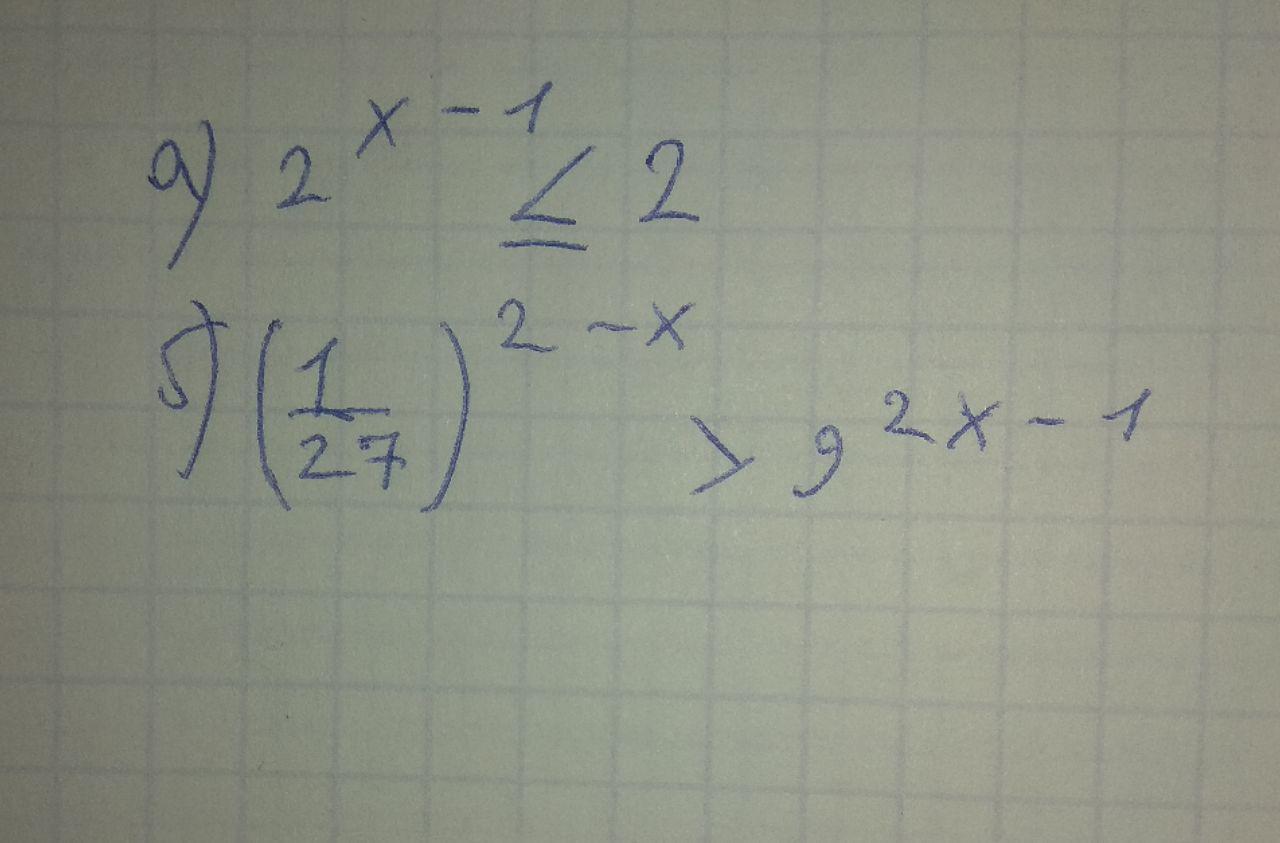 а) 2^{x-1} ≤ 2
б) (1/27)^{2-x} > 9^{2x-1}